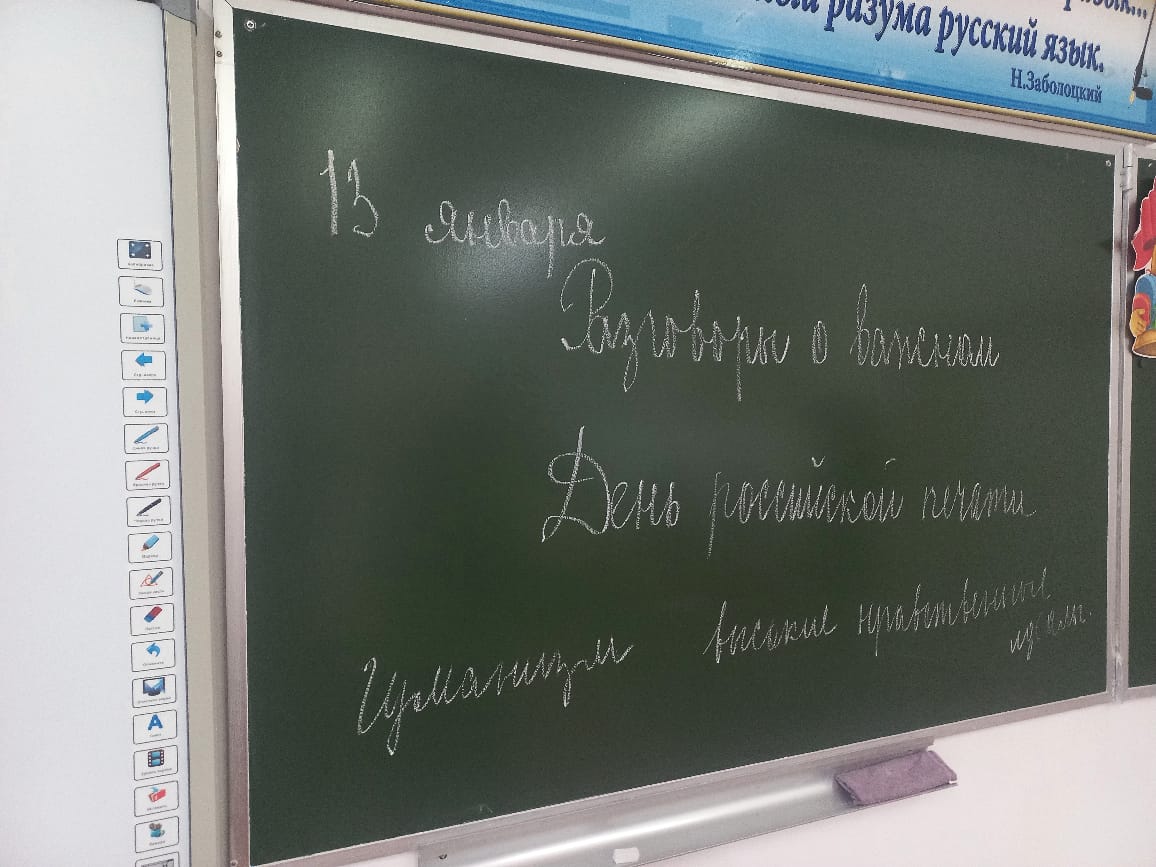 разума русский язык.
Н.Заболоцкий
13 января
Разговоры о важном
День российской печати
Гуманизм высокие нравственные
идеалы.